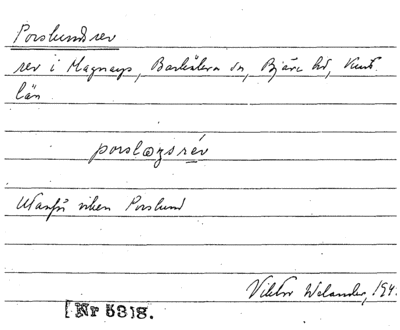 Porslundrev
rev i Magnarp, Barkåkra sn, Bjäre hd,
län
Utanför viken Porslund
Viktor Welander, 194.
[Nr 5318.